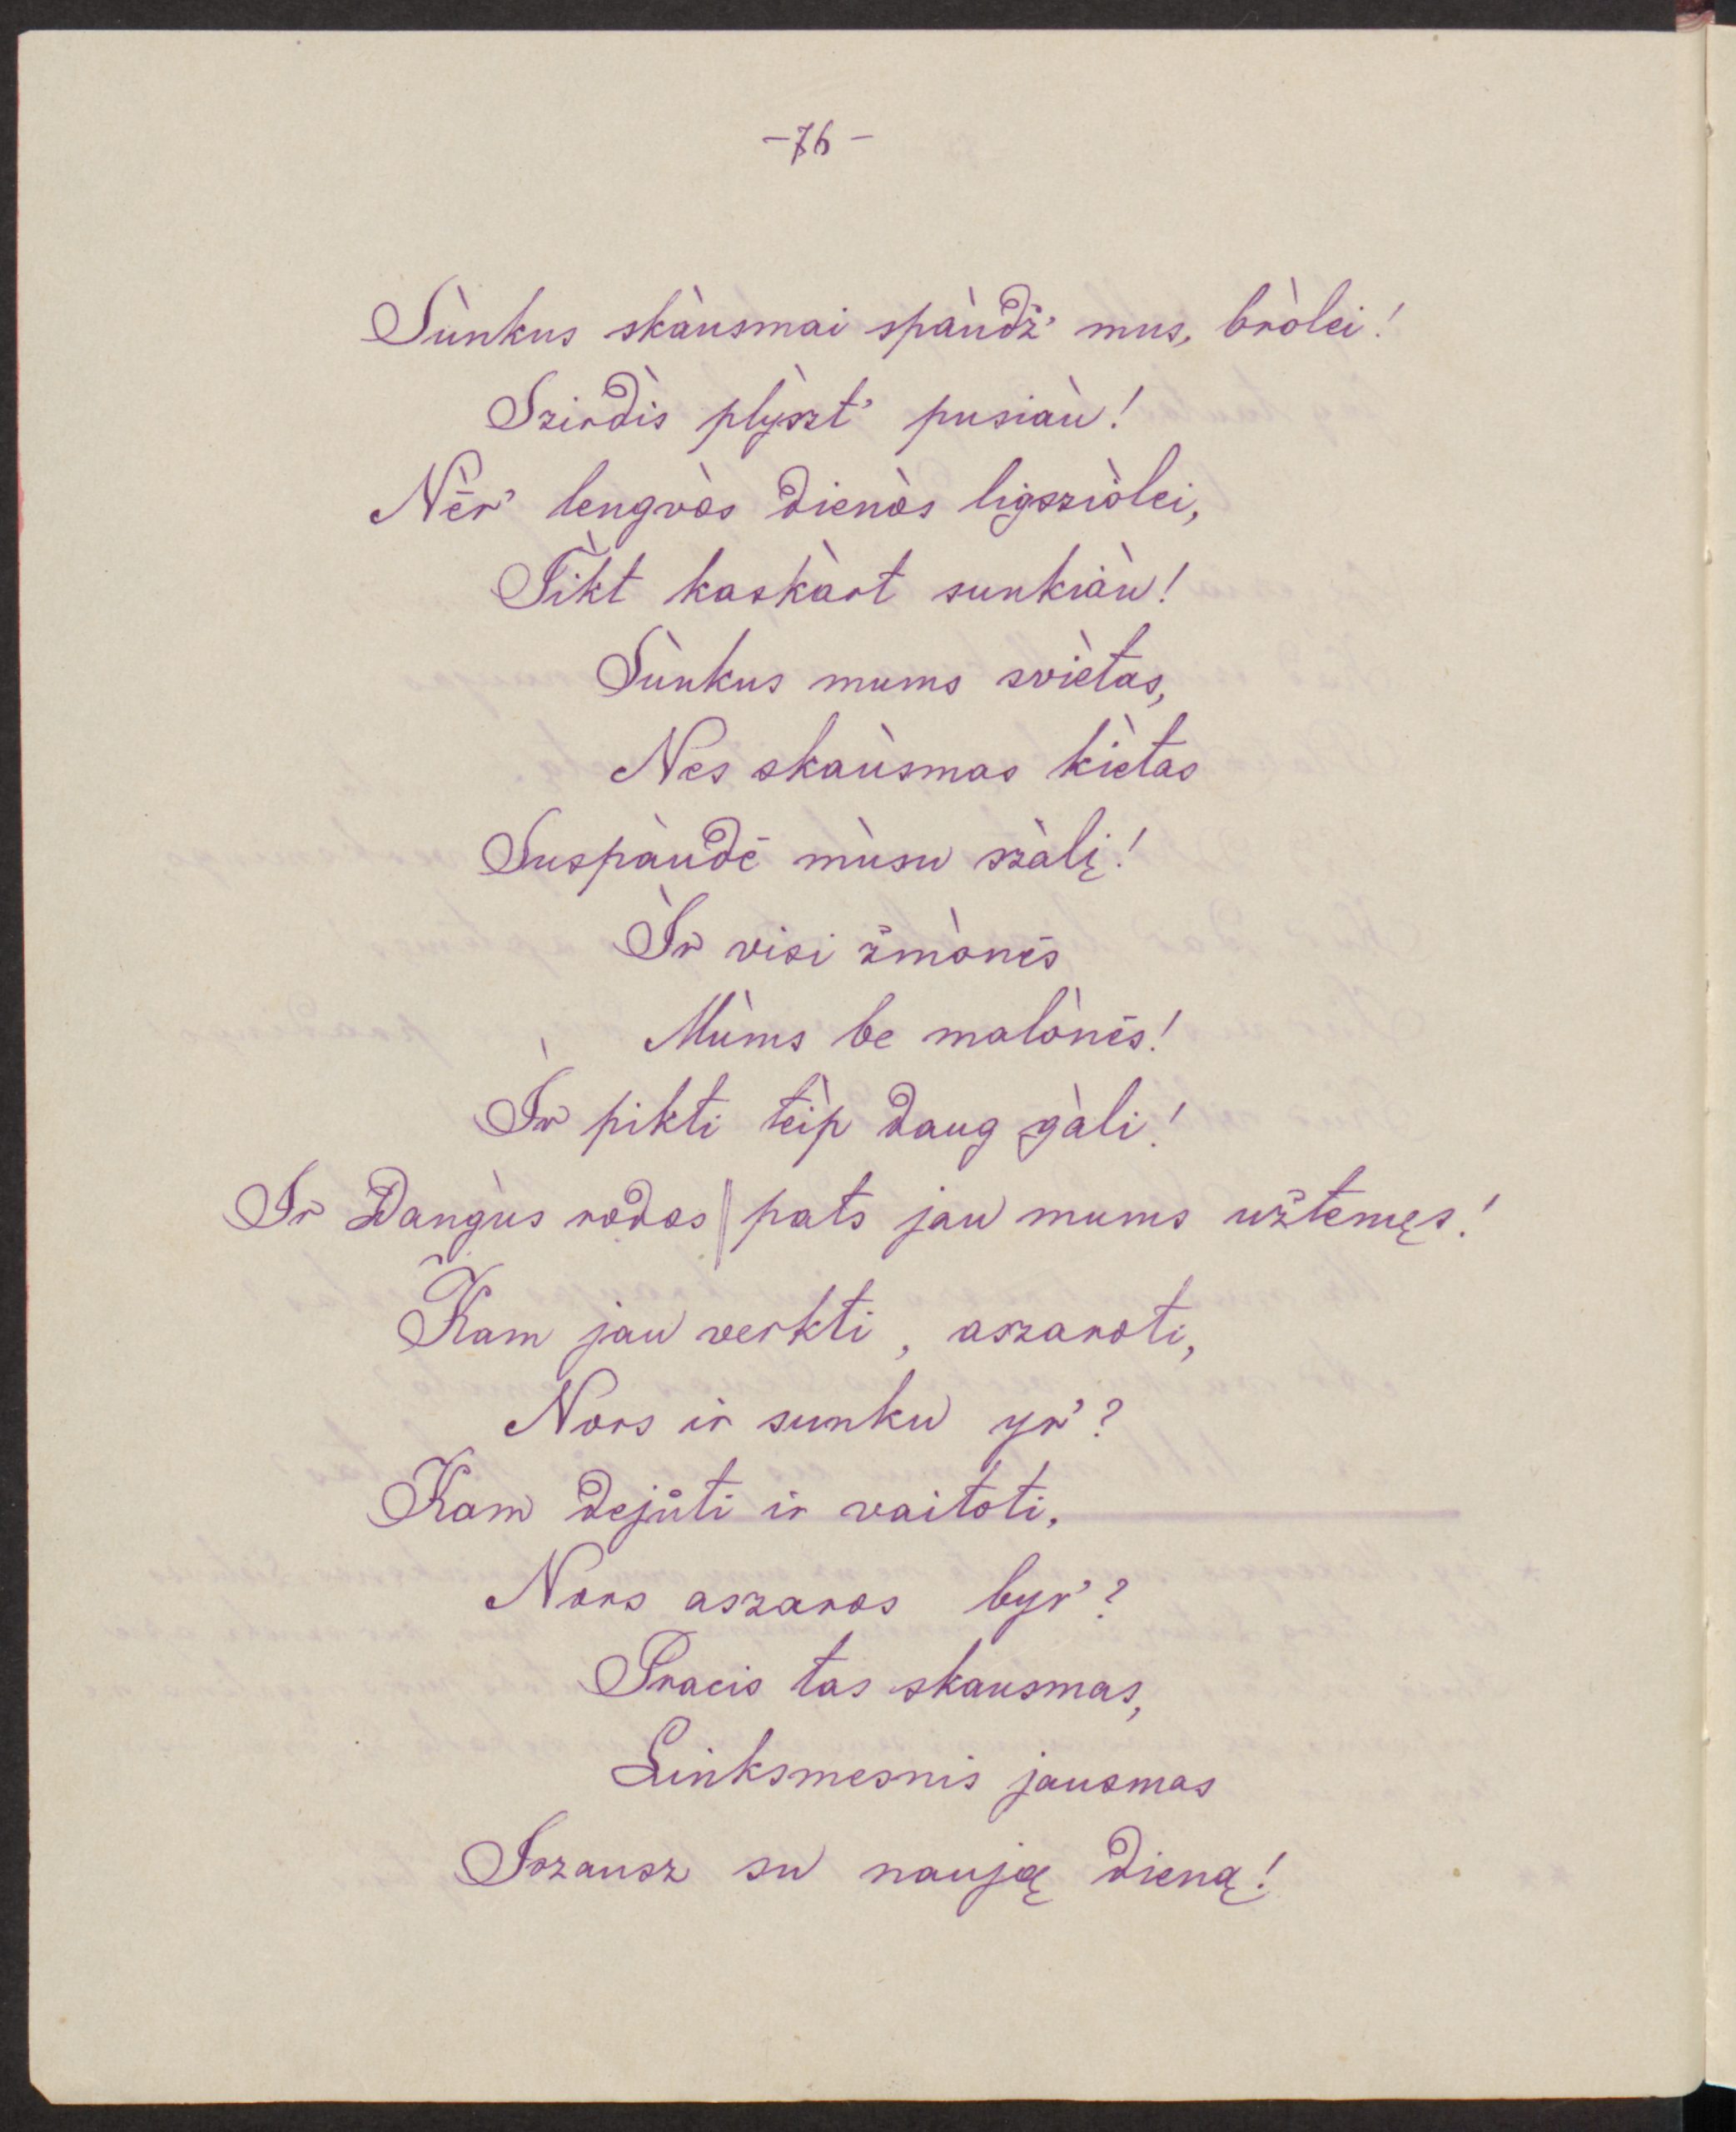 -76-
Sùnkus skàusmai spàudž' mus, bròlei!
Szirdìs plỳszt' pusiaù!
Nė̀r' lengvòs dienòs ligsziòlei,
Tìkt kaskàrt sunkiàu!
Sùnkus mums svìetas,
Nes skaùsmas kìetas
Suspàudė mùsu szàlį!
Ìr visi žmònės
Mùms be malònės!
Ìr pikti tèip daug gàli!
Ir Dangùs rodos | pats jau mums užtemęs!
Kam jau verkti, aszaroti,
Nors ir sunku yr'?
Kam dejůti ir vaitoti,
Nors aszaros byr'?
Praeis tas skausmas,
Linksmesnis jausmas
Iszausz su naują dieną!